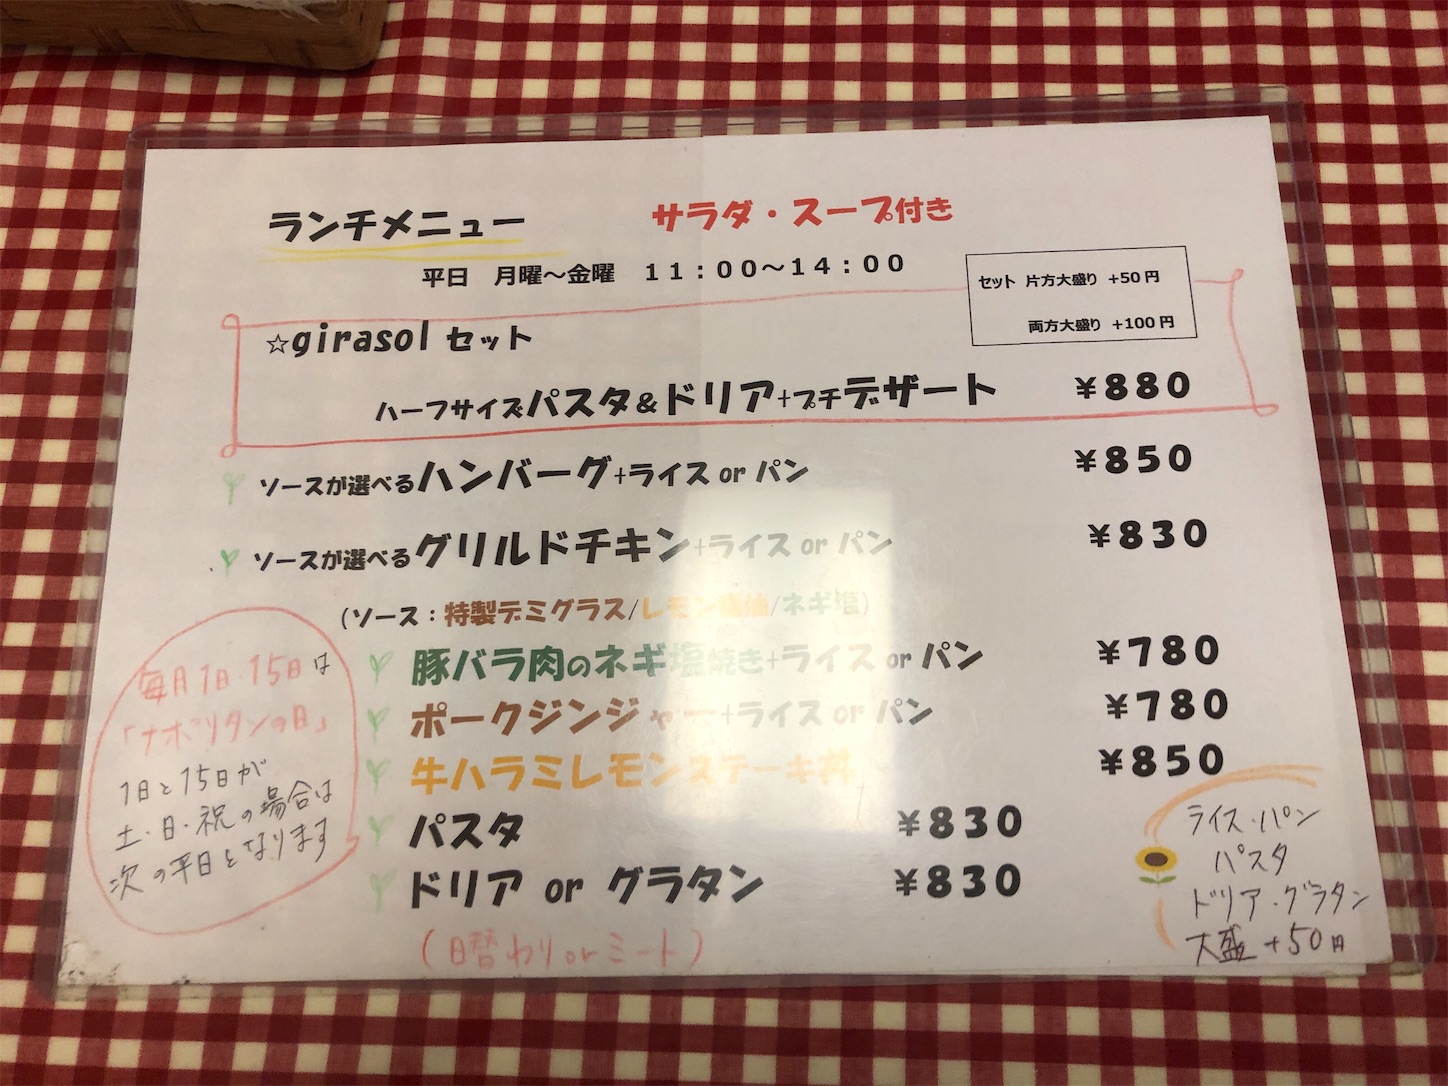 ランチメニュー　サラダ・スープ付き
平日　月曜～金曜　１１：００～１４：００
セット 片方大盛り +50円
両方大盛り +100円
☆girasolセット
ハーフサイズパスタ＆ドリア+プチデザート　￥880
ソースが選べるハンバーグ+ライス or パン　￥850
ソースが選べるグリルドチキン+ライス or パン　￥830
(ソース：特製デミグラス/レモン醬油/ネギ塩)
豚バラ肉のネギ塩焼き+ライス or パン　￥780
ポークジンジャー+ライス or パン　￥780
牛ハラミレモンステーキ丼　￥850
パスタ　￥830
ドリア or グラタン　￥830
(日替わり or ミート)
毎月1日・15日は
「ナポリタンの日」
1日と15日が
土・日・祝の場合は
次の平日となります
ライス・パン
パスタ
ドリア・グラタン
大盛 +50円